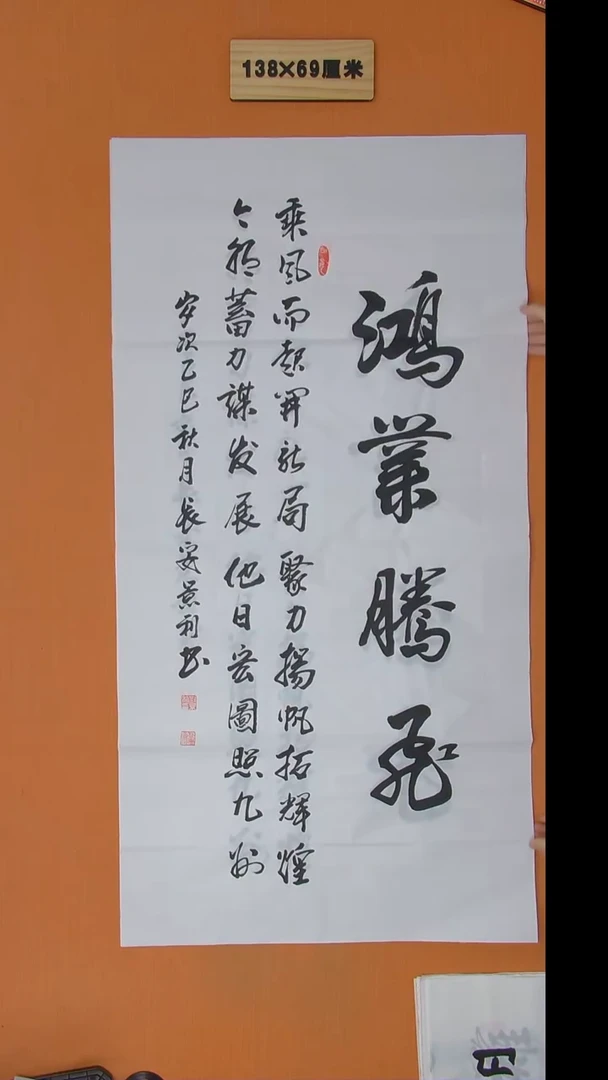 138×69厘米
鴻業騰飛
乘風而起開新局聚力揚帆拓輝煌
今朝蓄力謀发展他日宏圖照九州
歲次乙巳秋月長安景利書